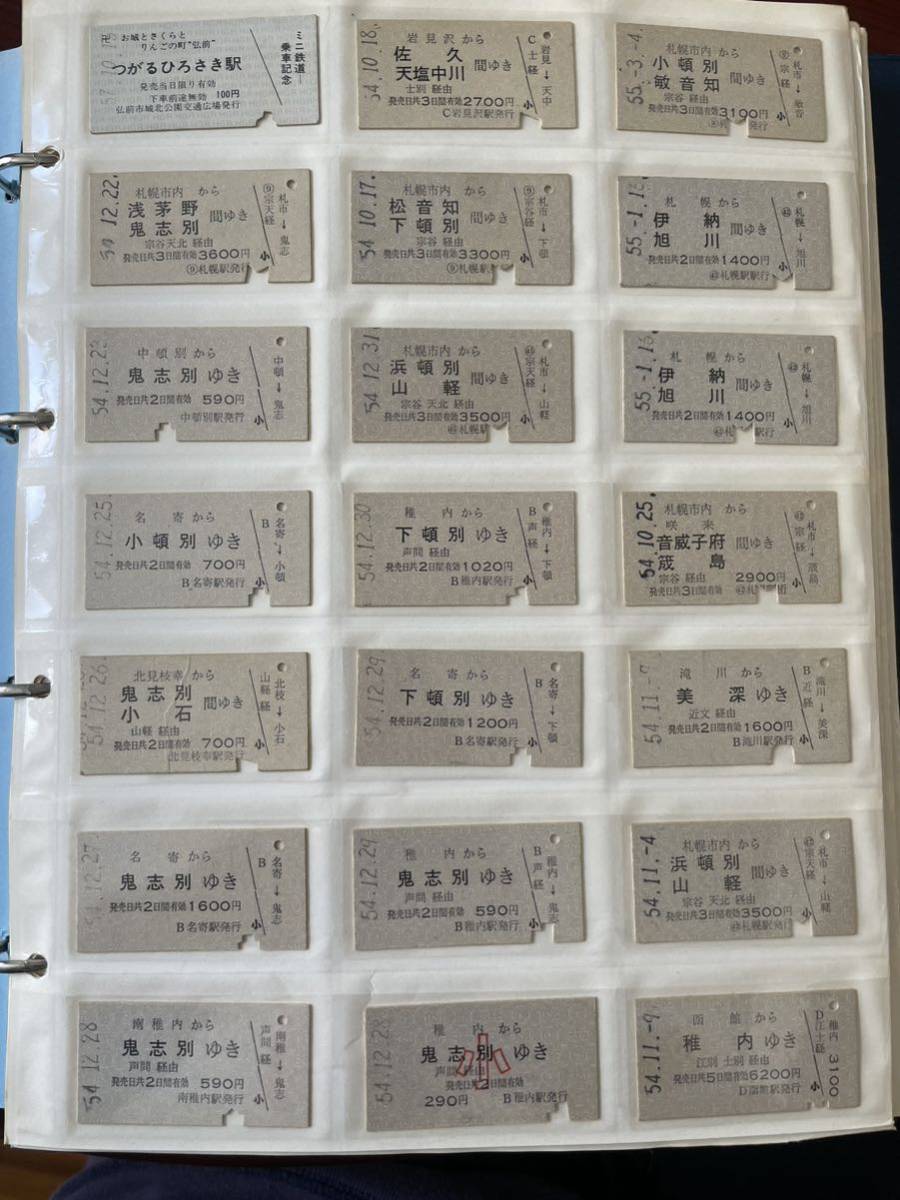 お城とさくらと
りんごの町"弘前"
つがるひろさき駅
発売当日限り有効
下車前途無効 100円
弘前市城北公園交通広場発行
ミニ鉄道
乗車記念
54.10.18
岩見沢から
佐久
天塩中川
間ゆき
士別 経由
発売日共3日間有効2700円
C岩見沢駅発行
C士経
岩見→天中
小
55.-3.-4
札幌市内から
小頓別
敏音知
間ゆき
宗谷 経由
発売日共3日間有効3100円
発行
札市→敏音
小
12.22
札幌市内 から
浅茅野
鬼志別
間ゆき
宗谷天北 経由
発売日共3日間有効3600円
⑨札幌駅発行
⑨宗天経
札市→鬼志
小
54.10.17
札幌市内 から
松音知
下頓別
間ゆき
宗谷 経由
発売日共3日間有効3300円
⑨札幌駅発行
⑨宗谷経
札市→下頓
小
55.-1.1
札幌から
伊納
旭川
間ゆき
発売日共2日間有効1400円
札幌駅発行
札幌→旭川
小
54.12.23
中頓別から
鬼志別ゆき
発売日共2日間有効 590円
中頓別駅発行
中頓→鬼志
小
54.12.31
札幌市内から
浜頓別
山軽
間ゆき
宗谷 天北 経由
発売日共3日間有効3500円
札幌駅
宗天経
札市→山軽
小
55.-1.1
札幌から
伊納
旭川
間ゆき
発売日共2日間有効1400円
札幌→旭川
小
54.12.25
名寄から
小頓別ゆき
発売日共2日間有効 700円
B名寄駅発行
B
名寄→小頓
小
54.12.30
稚内から
下頓別ゆき
声問 経由
発売日共2日間有効1020円
B稚内駅発行
B声経
稚内→下頓
小
54.10.25
札幌市内から
咲来
音威子府
筬島
間ゆき
宗谷 経由 2900円
発売日共3日間有効
宗経
札市→筬島
小
12.26
北見枝幸から
鬼志別
小石
間ゆき
山軽 経由
発売日共2日間有効 700円
北見枝幸駅発行
山軽経
北枝→小石
小
54.12.29
名寄から
下頓別ゆき
発売日共2日間有効1200円
B名寄駅発行
B
名寄→下頓
小
54.11.-7
滝川から
美深ゆき
近文 経由
発売日共2日間有効1600円
B滝川駅発行
B近経
滝川→美深
小
12.27
名寄から
鬼志別ゆき
発売日共2日間有効1600円
B名寄駅発行
B
名寄→鬼志
小
54.12.29
稚内から
鬼志別ゆき
声問 経由
発売日共2日間有効 590円
B稚内駅発行
B声経
稚内→鬼志
小
54.11.-4
札幌市内から
浜頓別
山軽
間ゆき
宗谷 天北 経由
発売日共3日間有効3500円
札幌駅発行
宗天経
札市→山軽
小
54.12.28
南稚内から
鬼志別ゆき
声問 経由
発売日共2日間有効 590円
南稚内駅発行
声問経
南稚→鬼志
小
54.12.28
稚内から
鬼志別ゆき
声問 経由
発売日共2日間有効
290円 B稚内駅発行
小
54.11.-9
函館から
稚内ゆき
江別 士別 経由
発売日共5日間有効6200円
D函館駅発行
D江士経
稚内 3100
小